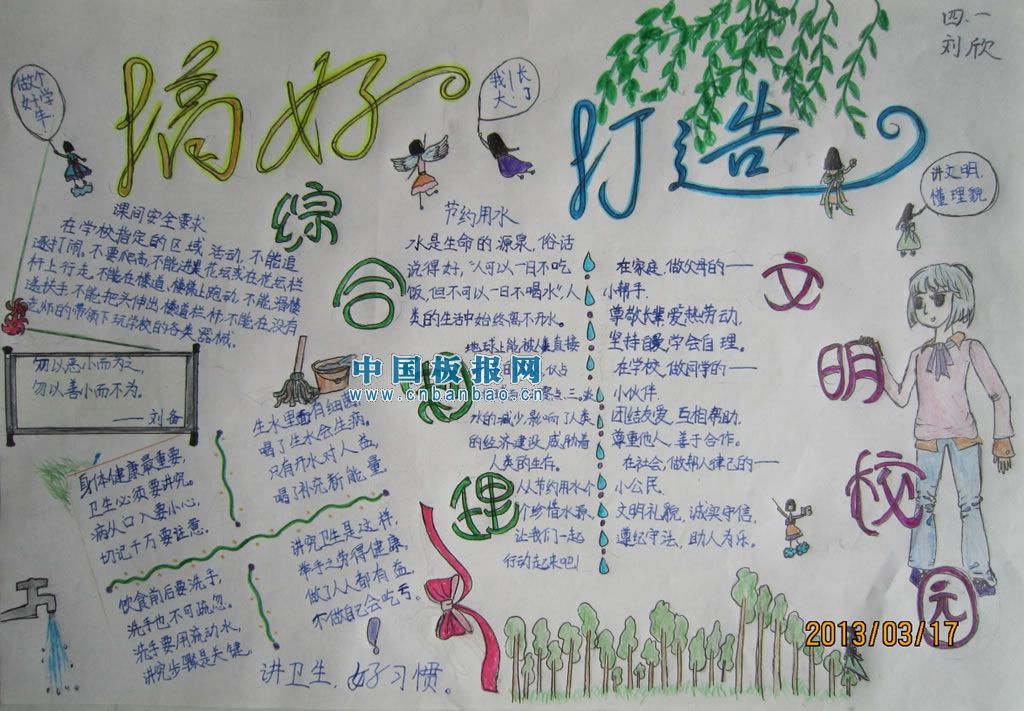 四、一
刘欣
搞好
综
合
治
理
打造
文
明
校
园
做个
好学
生！
我！长
大了
讲文明，
懂理貌
课间安全要求
在学校指定的区域活动，不能追
逐打闹。不要爬高不能进果花坛或在花坛栏
杆上行走，不能在楼道、楼梯上跑动，不能滑楼
道扶手，不能把头伸出楼道栏杆不能在没有
老师的带领下玩学校的各类器械。
勿以恶小而为之，
勿以善小而不为。
——刘备
身体健康最重要，
卫生必须要讲究。
病从口入要小心，
切记千万要注意。
生水里面有细菌，
喝了生水会生病。
只有开水对人益，
喝了补充新能量。
饮食前后要洗手，
洗手也不可疏忽。
洗手要用流动水，
讲究步骤是关键。
讲究卫生是这样，
举手之劳得健康，
做了人人都有益，
不做自己会吃亏。
讲卫生，好习惯。
节约用水
水是生命的源泉，俗话
说得好，“人可以一日不吃
饭，但不可以一日不喝水”，人
类的生活中始终离不开水。
地球上能被人类直接
水的减少，影响了人类
的经济建设，威胁着
人类的生存。
人从节约用水个
个珍惜水源，
让我们一起
行动起来吧！
在家庭，做父母的——
小帮手
尊敬长辈，爱热劳动，
坚持自我，学会自理。
在学校，做同学的——
小伙伴
团结友爱，互相帮助，
尊重他人，善于合作。
在社会，做帮人律己的——
小公民
文明礼貌，诚实守信，
遵纪守法，助人为乐。
中国板报网
www.cnbanbao.cn
2013/03/17